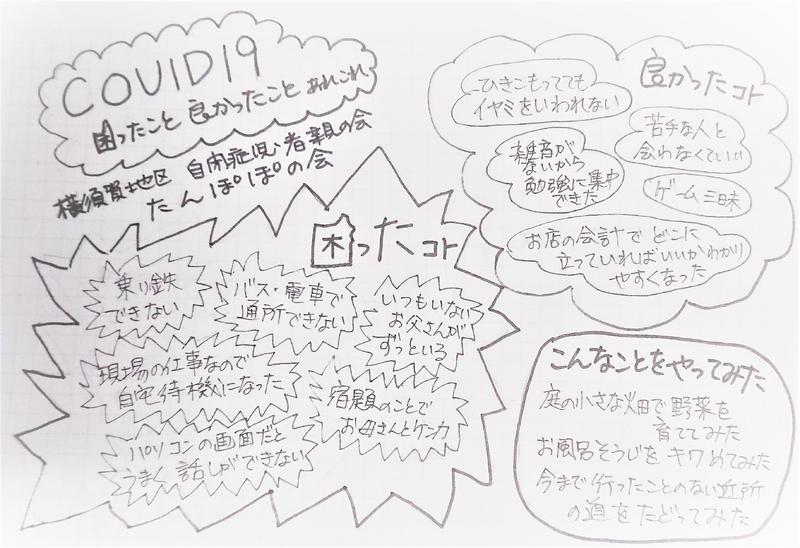 COVID19
困ったこと 良かったこと あれこれ
横須賀地区 自閉症児・者親の会
たんぽぽの会
良かったコト
ひきこもってても
イヤミをいわれない
苦手な人と
会わなくていい
雑音が
ないから
勉強に集中
できた
ゲーム三昧
お店の会計で どこに
立っていればいいかわかり
やすくなった
困ったコト
乗り鉄
できない
バス・電車で
通所できない
いつもいない
お父さんが
ずっといる
現場の仕事なので
自宅待機になった
宿題のことで
お母さんとケンカ
パソコンの画面だと
うまく話しができない
こんなことをやってみた
庭の小さな畑で野菜を
育ててみた
お風呂そうじを キワめてみた
今まで行ったことのない近所
の道をたどってみた